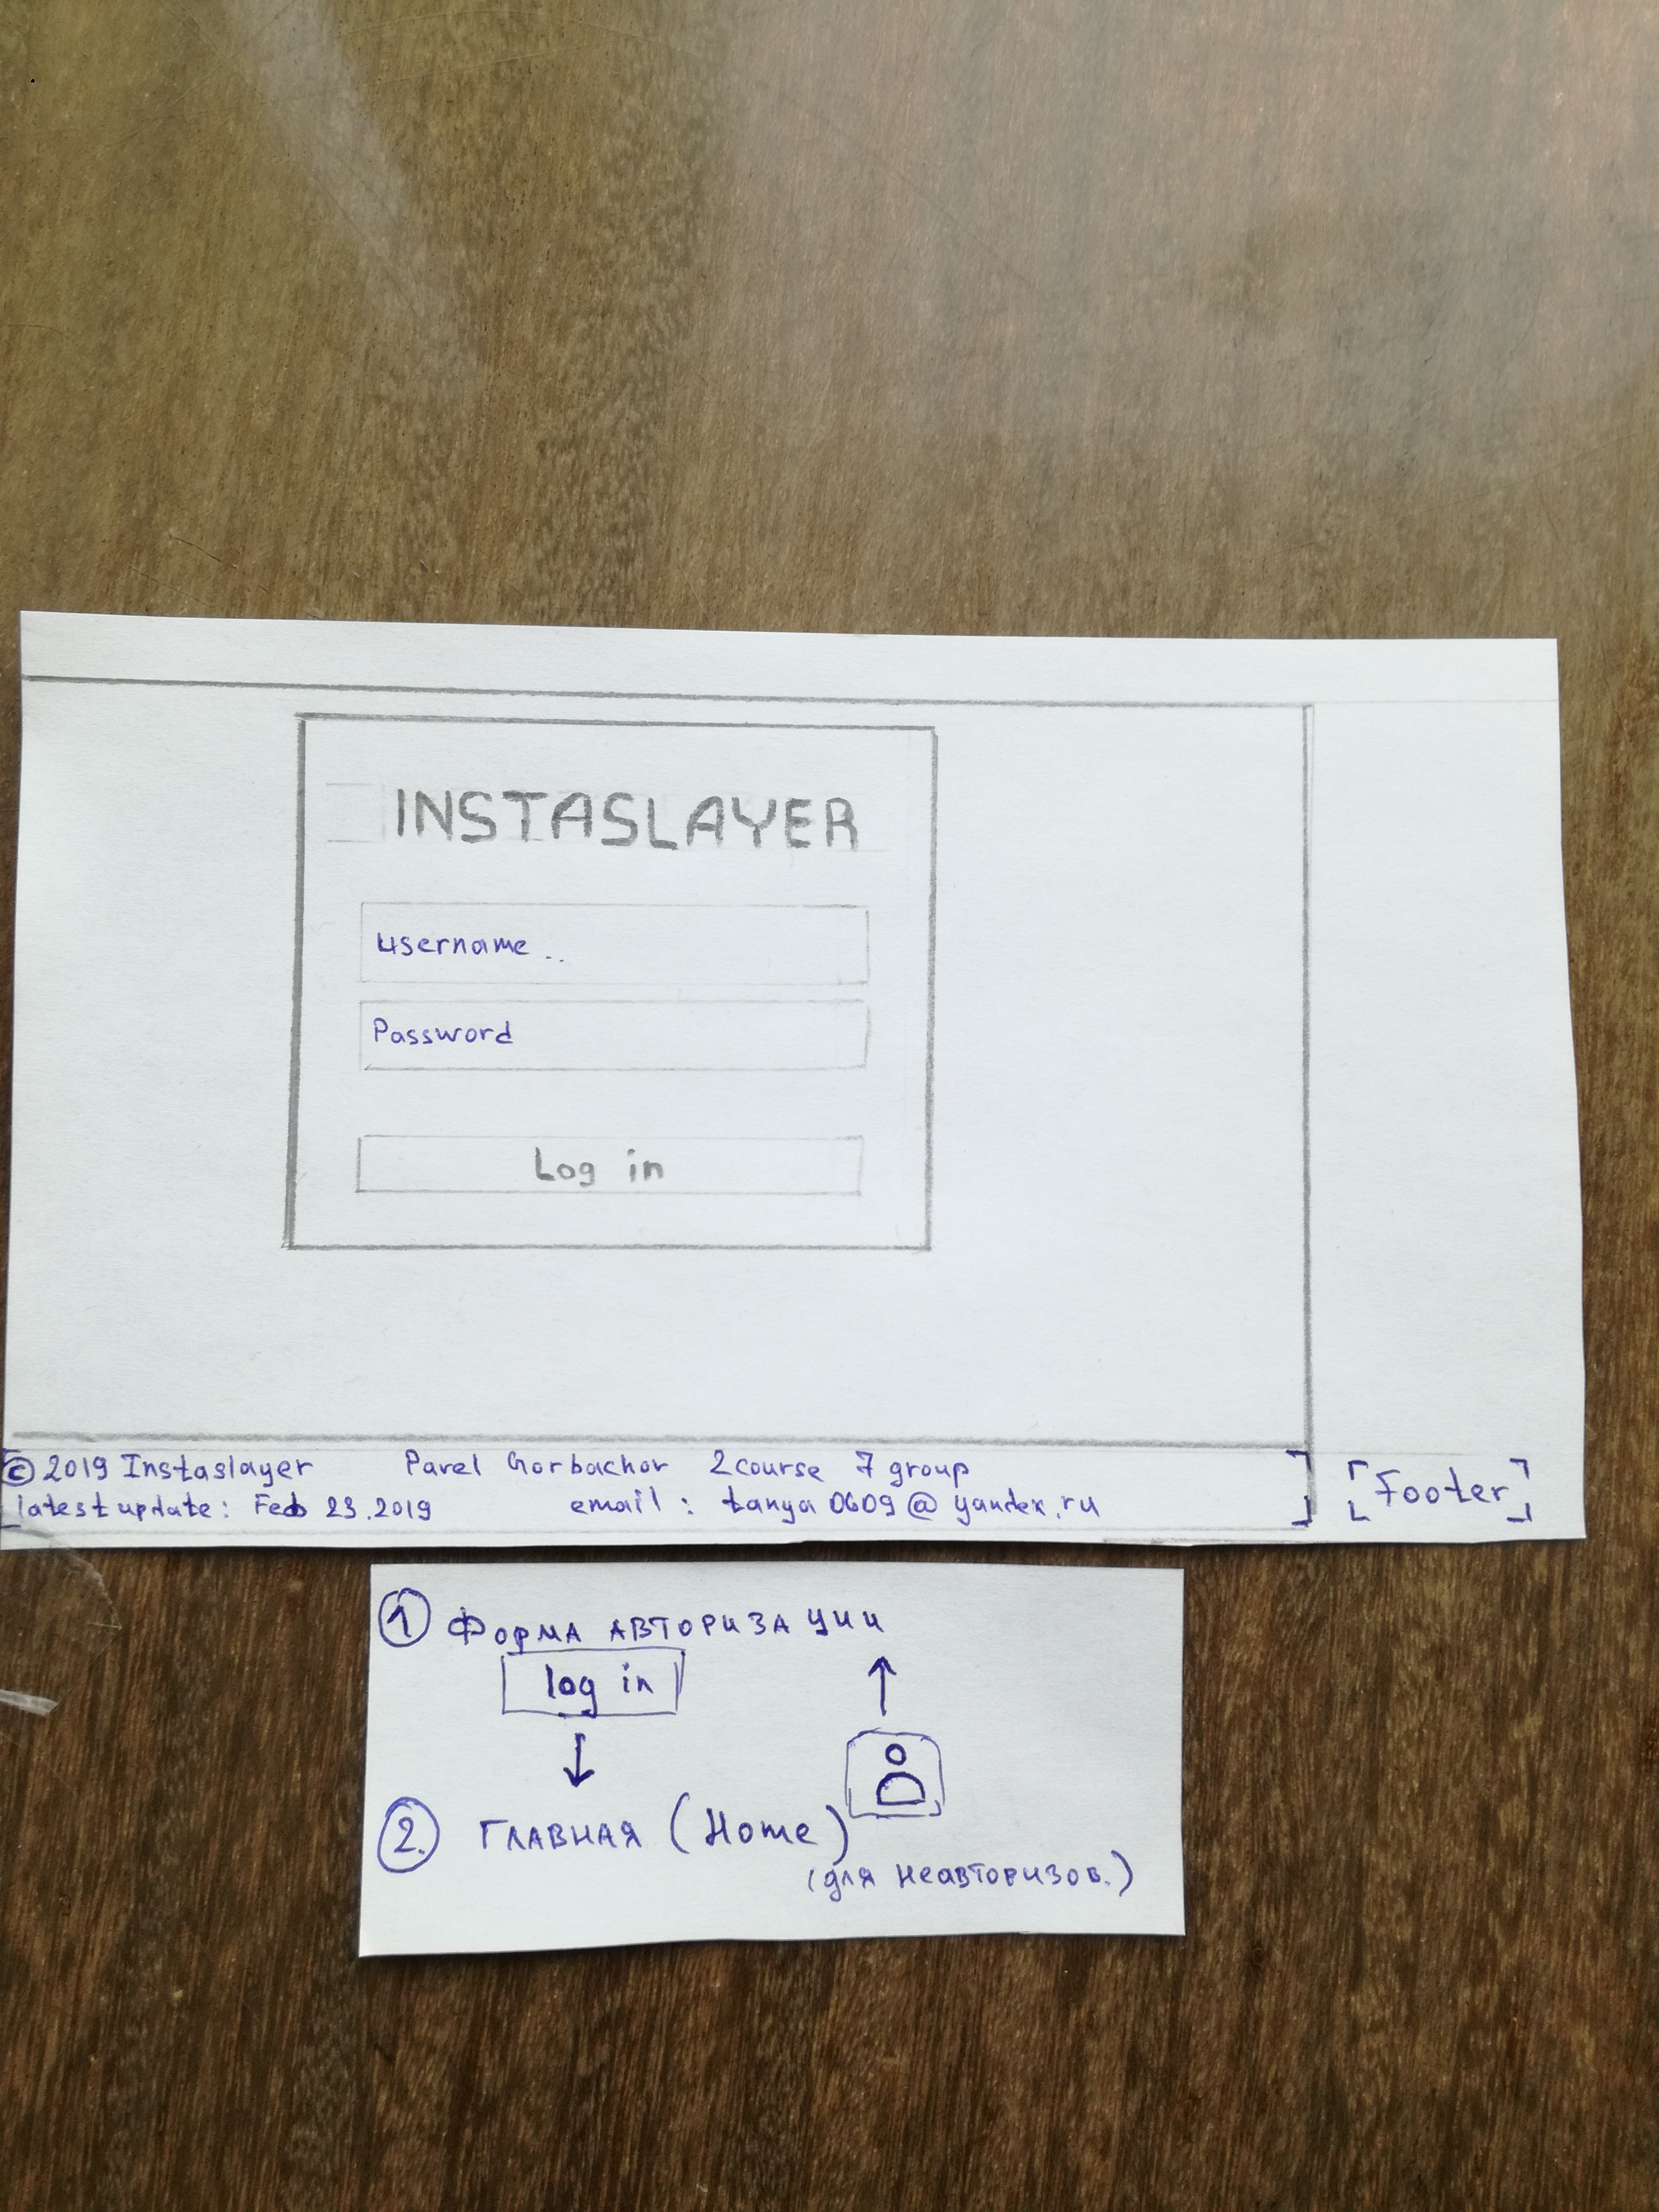 INSTASLAYER
Username ..
Password
Log in
© 2019 Instaslayer Pavel Gorbachov 2course 7 group
latest update: Feb 23.2019 email : tanya0609@yandex.ru
Footer
1 ФОРМА АВТОРИЗАЦИИ
log in
2. ГЛАВНАЯ (Home)
(для неавторизов.)